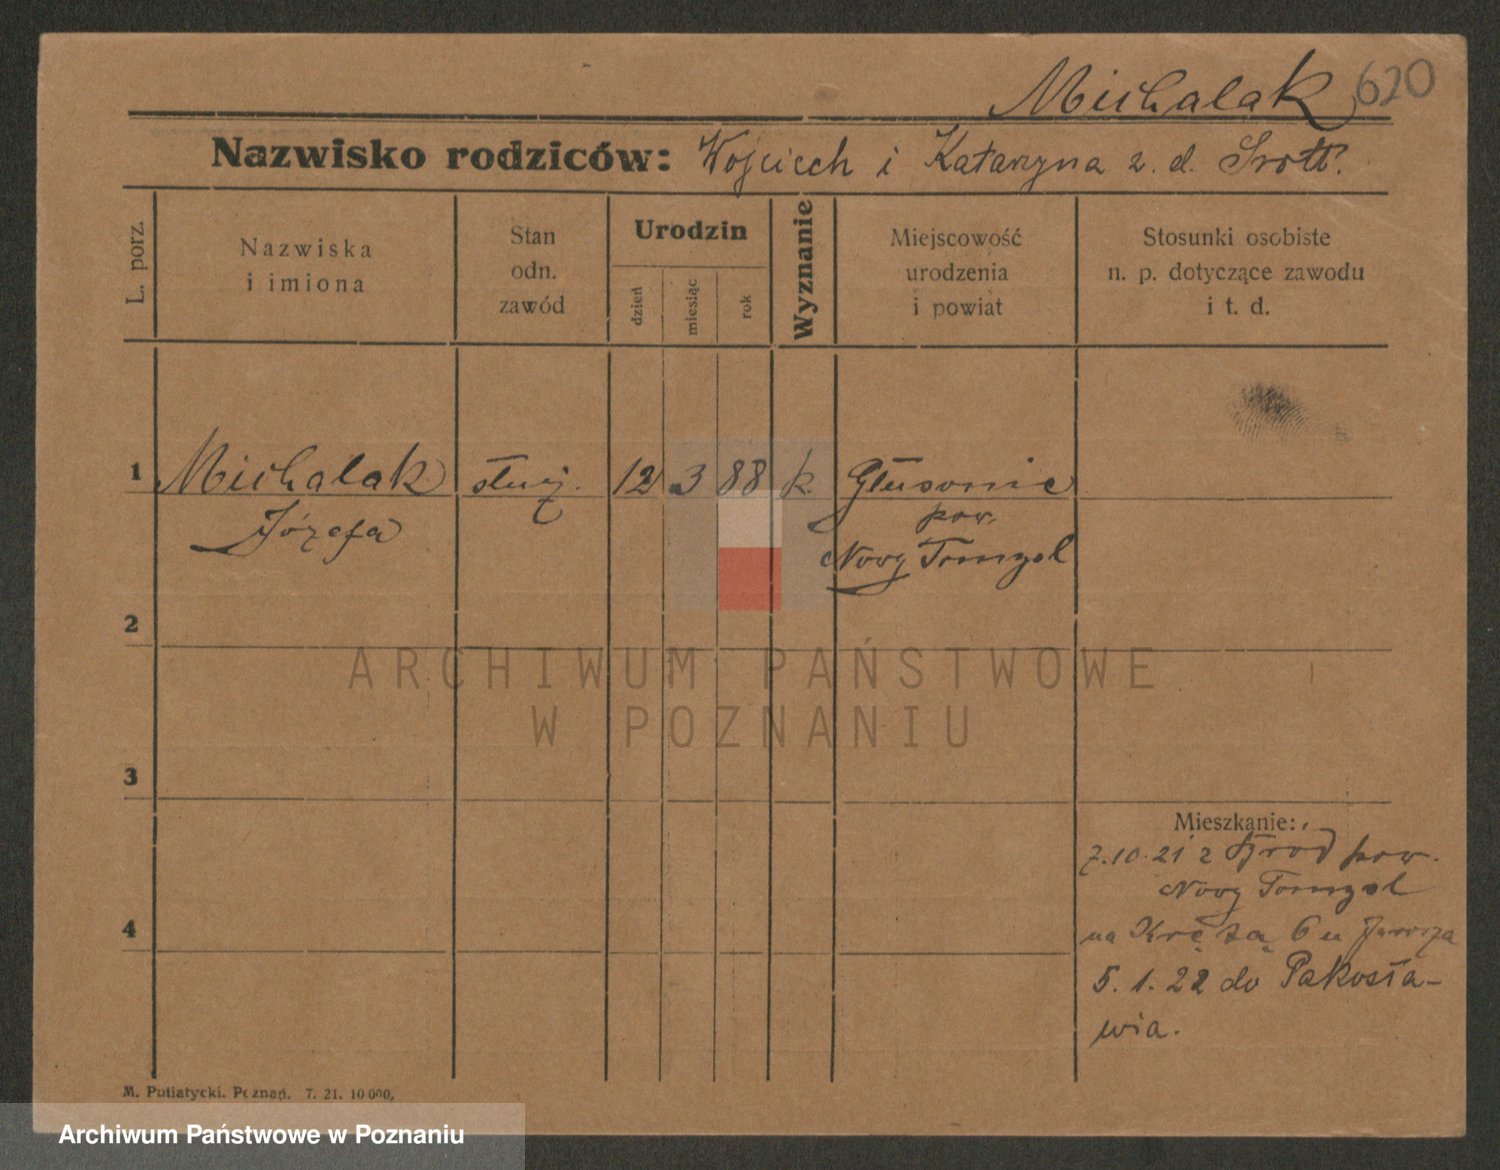 Michalak 620
Nazwisko rodziców: Wojciech i Katarzyna z. d. Srott.
L. porz.
Nazwiska
i imiona
Stan
odn.
zawód
Urodzin
dzień
miesiąc
rok
Wyznanie
Miejscowość
urodzenia
i powiat
Stosunki osobiste
n. p. dotyczące zawodu
i t. d.
1 Michalak służ. 12 3 88 k. Głuponie
Józefa pow.
Nowy Tomysl
2
3
4
Mieszkanie:
7.10.21 z pow.
Nowy Tomysl
na Krętą 6 u
5. 1. 22 do Pakosła-
wia.
M. Putiatycki. Poznań. 7. 21. 10 000,
ARCHIWUM PAŃSTWOWE
W POZNANIU
Archiwum Państwowe w Poznaniu